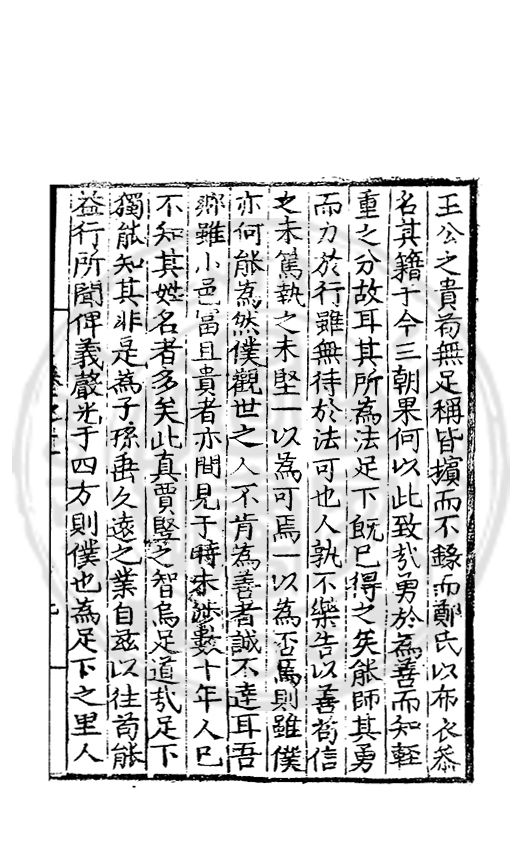 王公之貴苟無足稱皆擯而不錄而鄭氏以布衣忝
名其籍于今三朝果何以此致㢤勇於為善而知輕
重之分故耳其所為法足下既已得之矣能師其勇
而力於行雖無待於法可也人孰不樂告以善苟信
之未篤執之未堅一以為可焉一以為否焉則雖僕
亦何能為然僕觀世之人不肯為善者誠不達耳吾
鄉雖小邑富且貴者亦間見于時未渉數十年人已
不知其姓名者多矣此真賈豎之智烏足道㢤足下
獨能知其非是為子孫垂久遠之業自茲以往苟能
益行所聞俾義聲光于四方則僕也為足下之里人